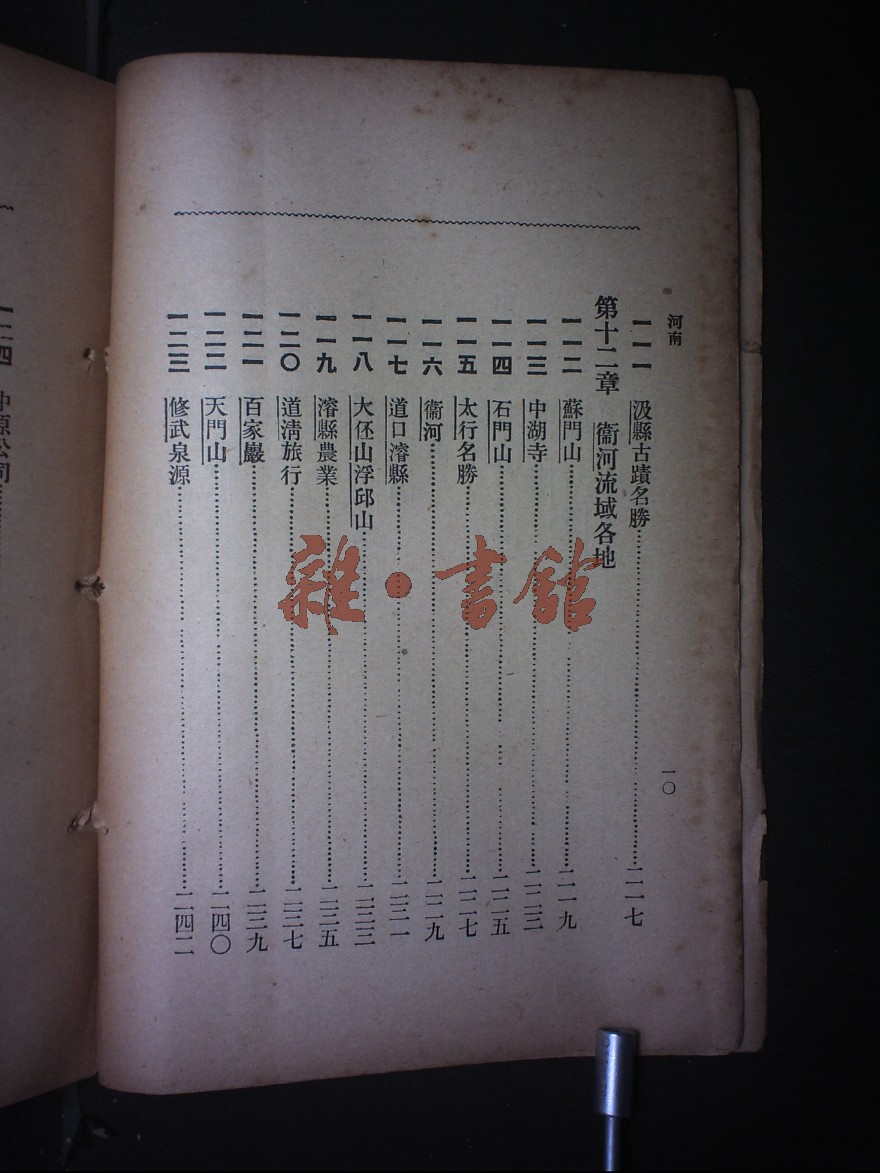 河南 一〇
一一一 汲縣古蹟名勝……二一七
第十二章 衞河流域各地
一一二 蘇門山……二一九
一一三 中湖寺……二二三
一一四 石門山……二二五
一一五 太行名勝……二二七
一一六 衞河……二二九
一一七 道口濬縣……二三一
一一八 大伾山浮邱山……二三三
一一九 濬縣農業……二三五
一二〇 道淸旅行……二三七
一二一 百家巖……二三九
一二二 天門山……二四〇
一二三 修武泉源……二四二
一二四 中原公司……
雜·書館